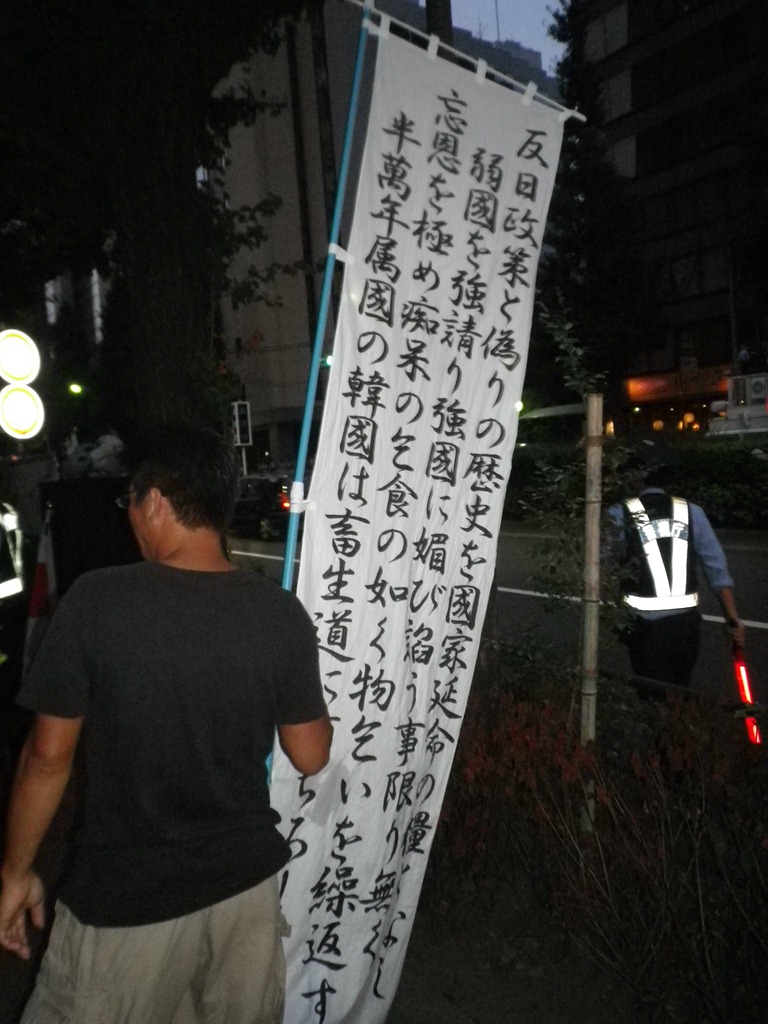 反日政策と偽りの歴史を國家延命の糧となし
弱國を強請り強國に媚び諂う事限り無く
忘恩を極め痴呆の乞食の如く物乞いを繰返す
半萬年属國の韓國は畜生道に